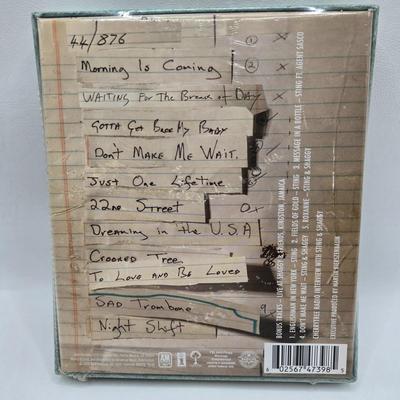 44/876 ① X
Morning Is Coming ② X
WAITING For The Break of DAY X
GOTTA Get Back My BABY
DON'T MAKE ME WAIT.
Just One Lifetime
22nd Street
Dreaming in the U.S.A
CROOKED TREE
To LOVE AND Be LOVED
SAD Trombone 9
Night Shift
BONUS TRACKS – LIVE AT SHAGGY'S KINGSTON, JAMAICA
1. ENGLISHMAN IN NEW YORK – STING 2. FIELDS OF GOLD – STING 3. MESSAGE IN A BOTTLE – STING FT. AGENT SASCO
4. DON'T MAKE ME WAIT – STING & SHAGGY 5. ROXANNE – STING & SHAGGY
CHERRYTREE RADIO INTERVIEW WITH STING & SHAGGY
EXECUTIVE PRODUCED BY MARTIN KIERSZENBAUM
A&M
6 02567 47398 5